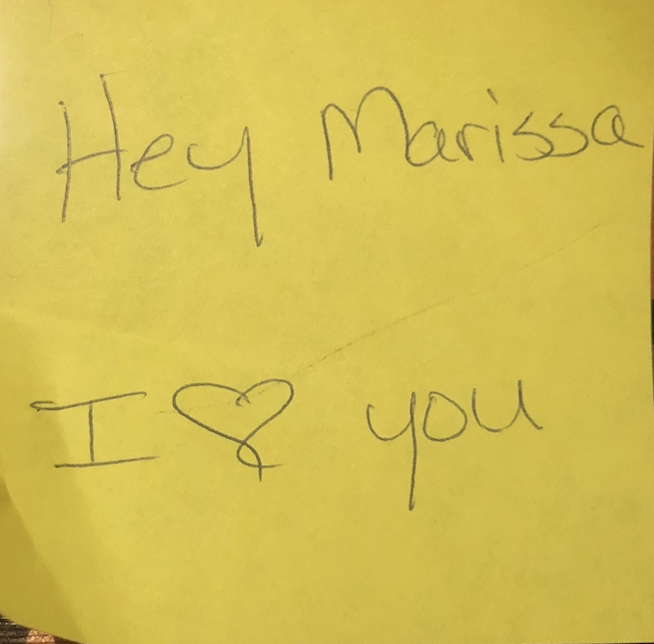 Hey Marissa
I ♡ you